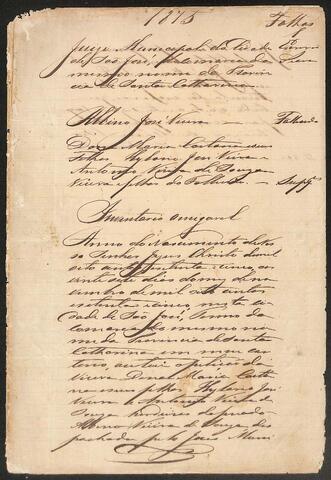 1875
Folhas
Juizo Municipal da Cidade
de São José, da Comarca do
mesmo nome da Provin
cia de Santa Catharina
Albino José Vieira — Fallecido
Dona Maria Caetana e seus
Filhos Hylario José Vieira
Antonio Vieira de Souza
Vieira e filhos do Fallecido — Suppes
Inventario amigavel
Anno do Nascimento de Nos
so Senhor Jesus Christo de mil
oito centos setenta e cinco, aos
vinte e sete dias do mez de
de mil oito centos
setenta e cinco, nesta ci
dade de São José, Termo da
comarca do mesmo no
me da Provincia de Santa
Catharina em meu car
torio, autuei a petição da
viuva Dona Maria Caeta
na e seus filhos Hylario José
Vieira e Antonio Vieira de
Souza herdeiros do finado
Albino Vieira de Souza, des
pachada pelo Juiz Muni